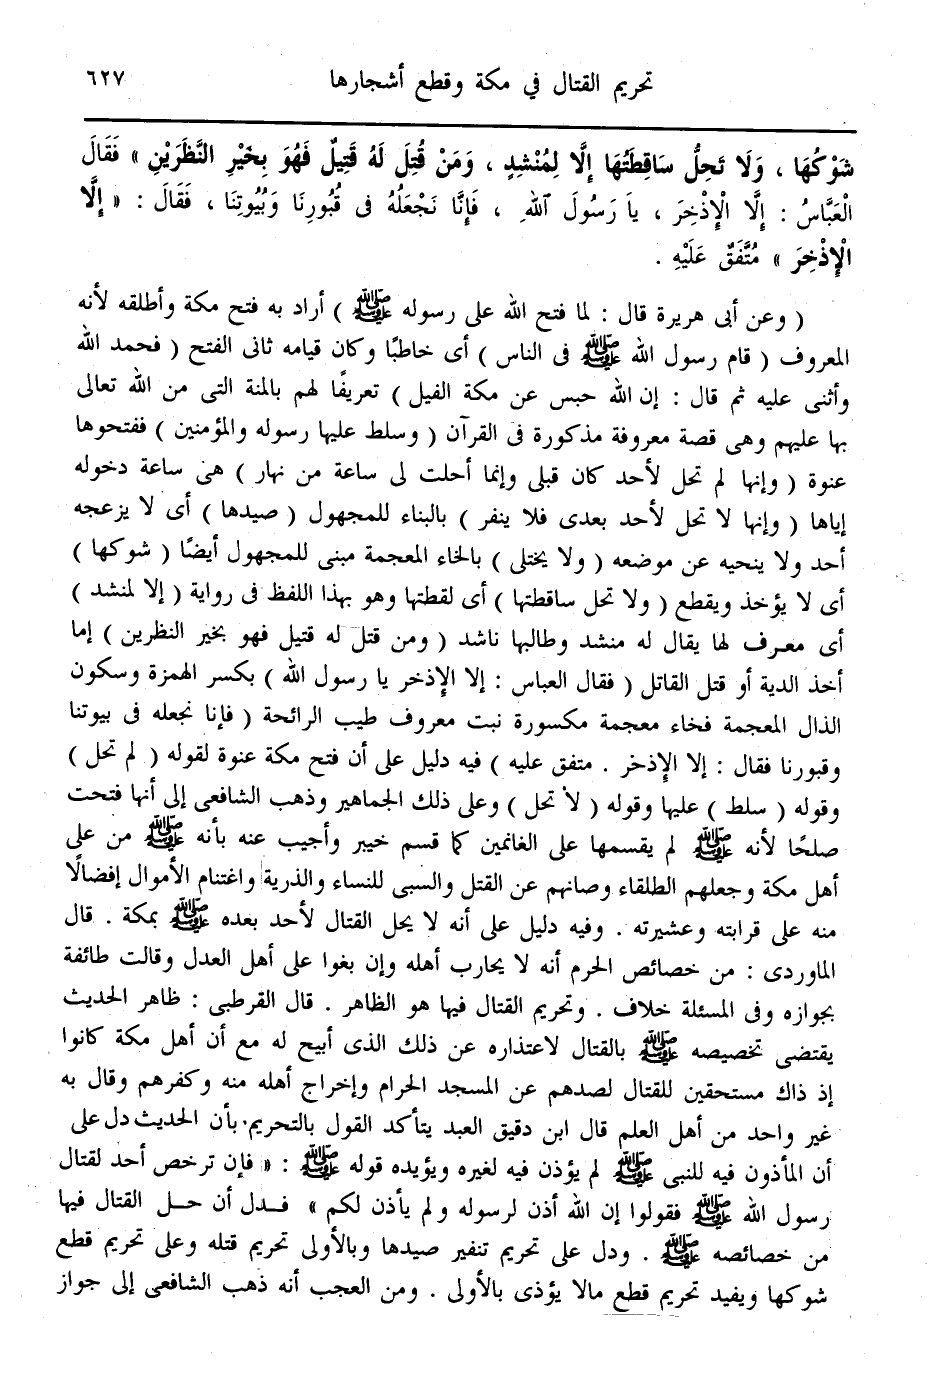 تحريم القتال في مكة وقطع أشجارها ٦٢٧
شَوْكُهَا ، وَلَا تَحِلُّ سَاقِطَتُهَا إِلَّا لِمُنْشِدٍ ، وَمَنْ قُتِلَ لَهُ قَتِيلٌ فَهُوَ بِخَيْرِ النَّظَرَيْنِ » فَقَالَ
الْعَبَّاسُ : إِلَّا الْإِذْخِرَ ، يَا رَسُولَ اللهِ ، فَإِنَّا نَجْعَلُهُ فى قُبُورِنَا وَبُيُوتِنَا ، فَقَالَ : « إِلَّا
الْإِذْخِرَ » مُتَّفَقٌ عَلَيْهِ .
( وعن أبى هريرة قال : لما فتح الله على رسوله ﷺ ) أراد به فتح مكة وأطلقه لأنه
المعروف ( قام رسول الله ﷺ فى الناس ) أى خاطبًا وكان قيامه ثانى الفتح ( فحمد الله
وأثنى عليه ثم قال : إن الله حبس عن مكة الفيل ) تعريفًا لهم بالمنة التى من الله تعالى
بها عليهم وهى قصة معروفة مذكورة فى القرآن ( وسلط عليها رسوله والمؤمنين ) ففتحوها
عنوة ( وإنها لم تحل لأحد كان قبلى وإنما أحلت لى ساعة من نهار ) هى ساعة دخوله
إياها ( وإنها لا تحل لأحد بعدى فلا ينفر ) بالبناء للمجهول ( صيدها ) أى لا يزعجه
أحد ولا ينحيه عن موضعه ( ولا يختلى ) بالخاء المعجمة مبنى للمجهول أيضًا ( شوكها )
أى لا يؤخذ ويقطع ( ولا تحل ساقطتها ) أى لقطتها وهو بهذا اللفظ فى رواية ( إلا لمنشد )
أى معرف لها يقال له منشد وطالبها ناشد ( ومن قتل له قتيل فهو بخير النظرين ) إما
أخذ الدية أو قتل القاتل ( فقال العباس : إلا الإذخر يا رسول الله ) بكسر الهمزة وسكون
الذال المعجمة فخاء معجمة مكسورة نبت معروف طيب الرائحة ( فإنا نجعله فى بيوتنا
وقبورنا فقال : إلا الإذخر . متفق عليه ) فيه دليل على أن فتح مكة عنوة لقوله ( لم تحل )
وقوله ( سلط ) عليها وقوله ( لا تحل ) وعلى ذلك الجماهير وذهب الشافعى إلى أنها فتحت
صلحًا لأنه ﷺ لم يقسمها على الغانمين كما قسم خيبر وأجيب عنه بأنه ﷺ من على
أهل مكة وجعلهم الطلقاء وصانهم عن القتل والسبى للنساء والذرية واغتنام الأموال إفضالًا
منه على قرابته وعشيرته . وفيه دليل على أنه لا يحل القتال لأحد بعده ﷺ بمكة . قال
الماوردى : من خصائص الحرم أنه لا يحارب أهله وإن بغوا على أهل العدل وقالت طائفة
بجوازه وفى المسئلة خلاف . وتحريم القتال فيها هو الظاهر . قال القرطبى : ظاهر الحديث
يقتضى تخصيصه ﷺ بالقتال لاعتذاره عن ذلك الذى أبيح له مع أن أهل مكة كانوا
إذ ذاك مستحقين للقتال لصدهم عن المسجد الحرام وإخراج أهله منه وكفرهم وقال به
غير واحد من أهل العلم قال ابن دقيق العبد يتأكد القول بالتحريم بأن الحديث دل على
أن المأذون فيه للنبى ﷺ لم يؤذن فيه لغيره ويؤيده قوله ﷺ : « فإن ترخص أحد لقتال
رسول الله ﷺ فقولوا إن الله أذن لرسوله ولم يأذن لكم » فـدل أن حـل القتال فيها
من خصائصه ﷺ . ودل على تحريم تنفير صيدها وبالأولى تحريم قتله وعلى تحريم قطع
شوكها ويفيد تحريم قطع مالا يؤذى بالأولى . ومن العجب أنه ذهب الشافعى إلى جواز